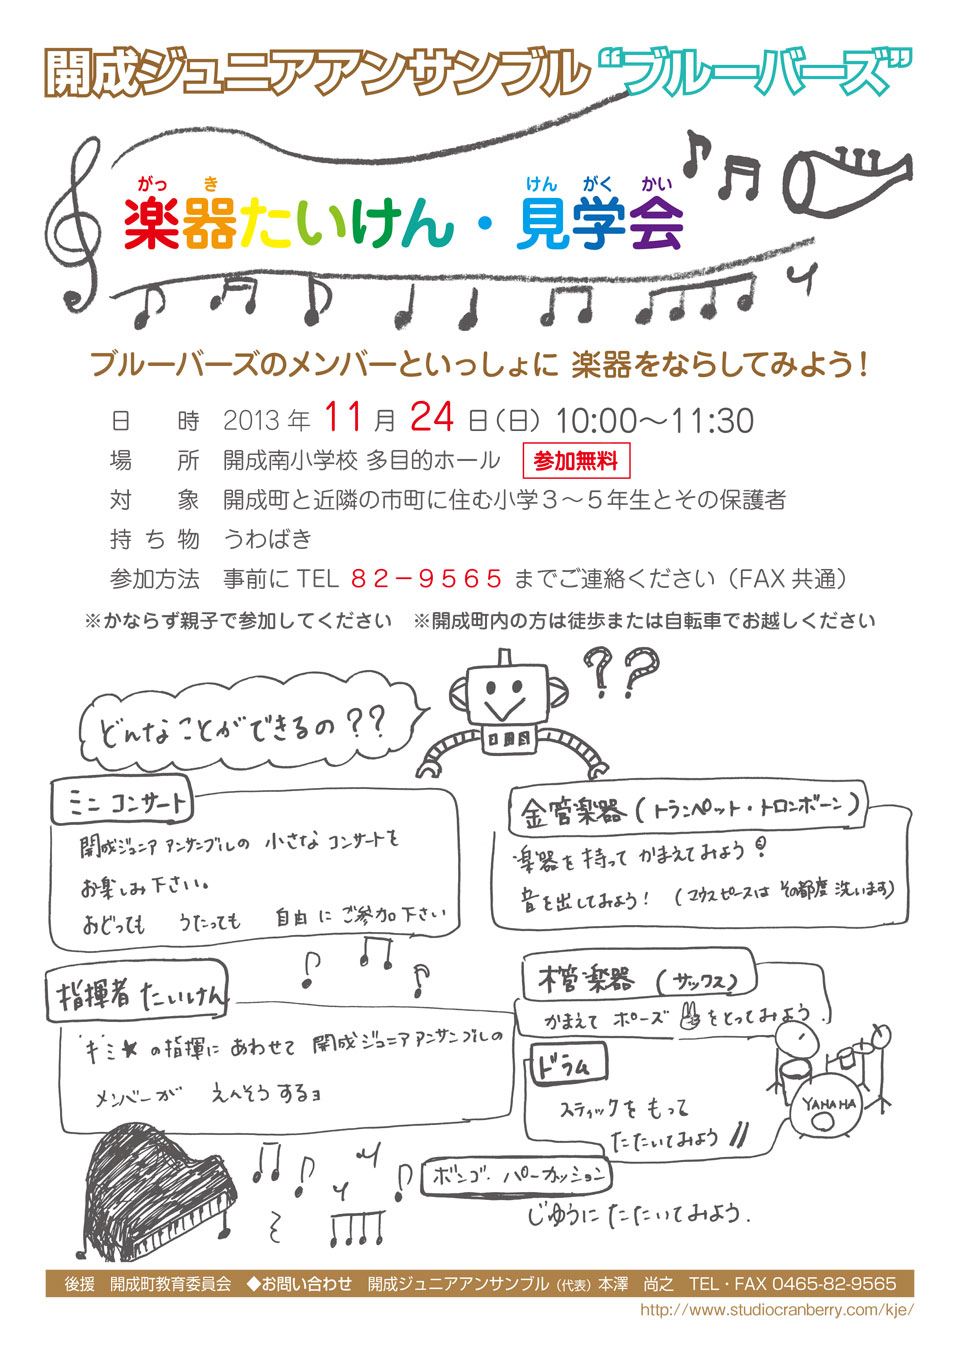 開成ジュニアアンサンブル“ブルーバーズ”
がっ き けん がく かい
楽器たいけん・見学会
ブルーバーズのメンバーといっしょに 楽器をならしてみよう！
日 時 2013年 11月 24日（日） 10:00～11:30
場 所 開成南小学校 多目的ホール 参加無料
対 象 開成町と近隣の市町に住む小学３～５年生とその保護者
持 ち 物 うわばき
参加方法 事前にTEL ８２－９５６５ までご連絡ください（FAX共通）
※かならず親子で参加してください ※開成町内の方は徒歩または自転車でお越しください
どんなことができるの？？
？？
ミニ コンサート
開成ジュニア アンサンブルの 小さな コンサートを
お楽しみ下さい。
おどっても うたっても 自由に ご参加下さい
金管楽器（トランペット・トロンボーン）
楽器を持って かまえてみよう！
音を出してみよう！ （マウスピースは その都度 洗います）
指揮者 たいけん
キミ★の指揮に あわせて 開成ジュニアアンサンブルの
メンバーが えんそうするョ
木管楽器（サックス）
かまえて ポーズ をとってみよう.
ドラム
スティックを もって
たたいてみよう!!
YAHAHA
ボンゴ・パーカッション
じゆうに たたいてみよう.
後援 開成町教育委員会 ◆お問い合わせ 開成ジュニアアンサンブル（代表）本澤 尚之 TEL・FAX 0465-82-9565
http://www.studiocranberry.com/kje/